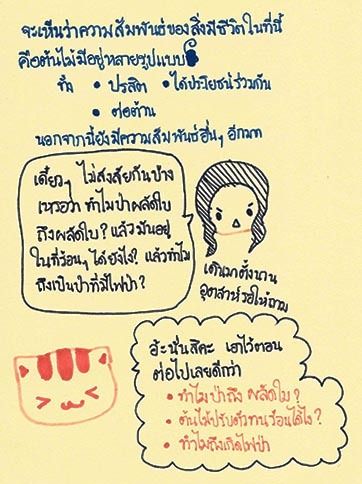 จะเห็นว่าความสัมพันธ์ของสิ่งมีชีวิตในที่นี้
คือต้นไม้มีอยู่หลายรูปแบบ
ทั้ง • ปรสิต • ได้ประโยชน์ร่วมกัน
• ต่อต้าน
นอกจากนี้ยังมีความสัมพันธ์อื่นๆ อีกมาก
เดี๋ยวๆ ไม่สงสัยกันบ้าง
เหรอว่า ทำไมป่าผลัดใบ
ถึงผลัดใบ? แล้วมันอยู่
ในที่ร้อนๆ ได้ยังไง? แล้วทำไม
ถึงเป็นป่าที่มีไฟป่า?
ตั้งนาน
อุตส่าห์รอให้ถาม
อ๊ะนั่นสิคะ เอาไว้ตอน
ต่อไปเลยดีกว่า
• ทำไมป่าถึง ผลัดใบ?
• ต้นไม้ปรับตัวทนร้อนได้ไง?
• ทำไมถึงเกิดไฟป่า